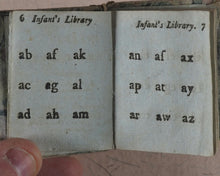 6 Infant's Library
ab af ak
ac eg al
ad ah am
Infant's Library. 7
an as ax
ap at ay
ar aw az